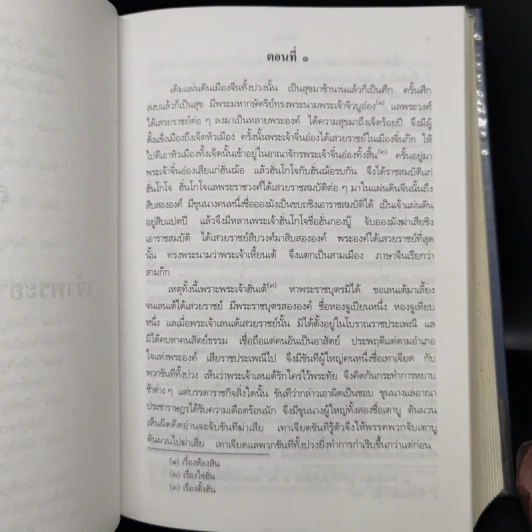 ตอนที่ ๑
เดิมแผ่นดินเมืองจีนทั้งปวงนั้น เป็นสุขมาช้านานแล้วก็เป็นศึก ครั้นศึก
สงบแล้วก็เป็นสุข มีพระมหากษัตริย์ทรงพระนามพระเจ้าจิวบูอ๋อง(๑) แลพระวงศ์
ได้เสวยราชย์ต่อ ๆ ลงมาเป็นหลายพระองค์ ได้ความสุขมาถึงเจ็ดร้อยปี จึงมีผู้
ตั้งแข็งเมืองถึงเจ็ดหัวเมือง ครั้งนั้นพระเจ้าจิ๋นอ๋องได้เสวยราชย์ในเมืองจิ้นก๊ก ให้
ไปตีเอาหัวเมืองทั้งเจ็ดนั้นเข้าอยู่ในอาณาจักรพระเจ้าจิ๋นอ๋องทั้งสิ้น(๒) ครั้นอยู่มา
พระเจ้าจิ๋นอ๋องเสียแก่ฮั่นฌ้อ แล้วฮั่นโกโจกับฮั่นฌ้อรบกัน จึงได้ราชสมบัติแก่
ฮั่นโกโจ ฮั่นโกโจแลพระราชวงศ์ได้เสวยราชสมบัติต่อ ๆ มาในแผ่นดินจีนนั้นถึง
สิบสององค์ มีขุนนางคนหนึ่งชื่ออองมังเป็นขบถชิงเอาราชสมบัติได้ เป็นเจ้าแผ่นดิน
อยู่สิบแปดปี แล้วจึงมีหลานพระเจ้าฮั่นโกโจชื่อฮั่นกองบู๊ จับอองมังฆ่าเสียชิง
เอาราชสมบัติ ได้เสวยราชย์สืบวงศ์มาสิบสององค์ พระองค์ได้เสวยราชย์ที่สุด
นั้น ทรงพระนามว่าพระเจ้าเหี้ยนเต้ จึงแตกเป็นสามเมือง ภาษาจีนเรียกว่า
สามก๊ก
เหตุทั้งนี้เพราะพระเจ้าฮั่นเต้(๓) หาพระราชบุตรมิได้ ขอเลนเต้มาเลี้ยง
จนเลนเต้ได้เสวยราชย์ มีพระราชบุตรสององค์ ชื่อหองจูเปียนหนึ่ง หองจูเหียบ
หนึ่ง แลเมื่อพระเจ้าเลนเต้เสวยราชย์นั้น มิได้ตั้งอยู่ในโบราณราชประเพณี แล
มิได้คบหาคนสัตย์ธรรม เชื่อถือแต่คนอันเป็นอาสัตย์ ประพฤติแต่ตามอำเภอ
ใจแห่งพระองค์ เสียราชประเพณีไป จึงมีขันทีผู้ใหญ่คนหนึ่งชื่อเทาเจียด กับ
พวกขันทีทั้งปวง เห็นว่าพระเจ้าเลนเต้รักใคร่ไว้พระทัย จึงคิดกันกระทำการหยาบ
ช้าต่าง ๆ แต่บรรดาราชกิจสิ่งใดนั้น ขันทีว่ากล่าวเอาผิดเป็นชอบ ขุนนางแลอาณา
ประชาราษฎรได้รับความเดือดร้อนนัก จึงมีขุนนางผู้ใหญ่ทั้งสองชื่อเตาบู ตันผวน
เห็นผิดคิดอ่านจะจับขันทีฆ่าเสีย เทาเจียดขันทีรู้ตัวจึงให้พรรคพวกจับเตาบู
ตันผวนไปฆ่าเสีย เทาเจียดแลพวกขันทีทั้งปวงยิ่งทำการกำเริบขึ้นกว่าแต่ก่อน
(๑) เรื่องห้องสิน
(๒) เรื่องไซ่ฮั่น
(๓) เรื่องตั้งฮั่น